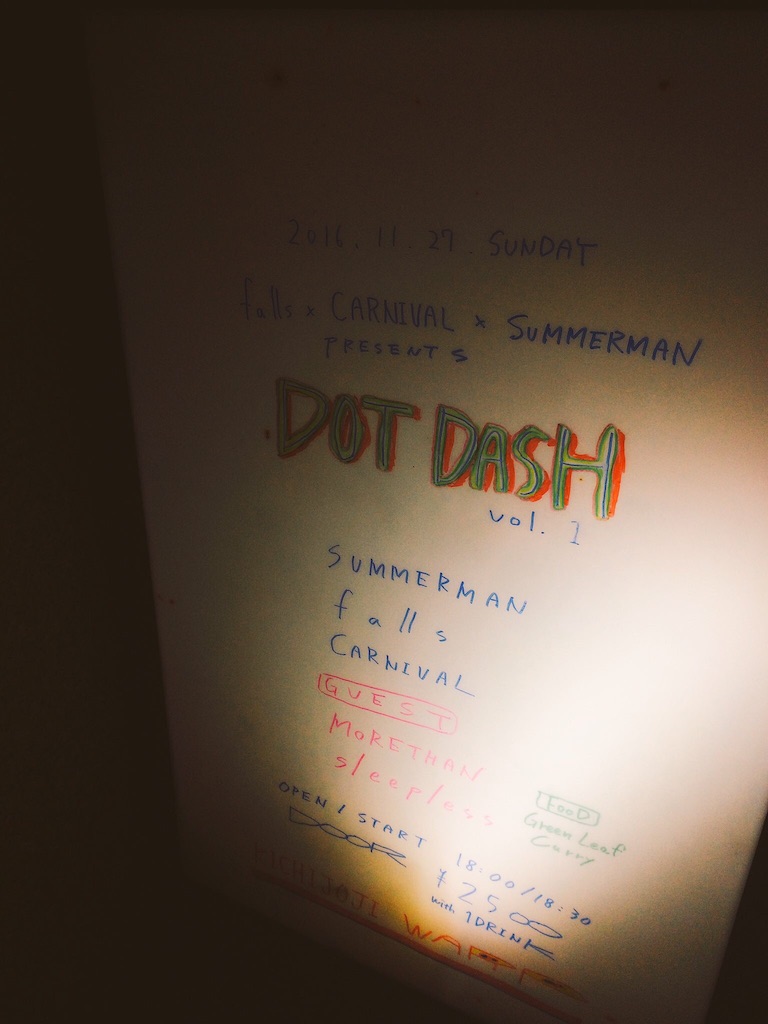 2016. 11. 27. SUNDAY
falls x CARNIVAL x SUMMERMAN
PRESENTS
DOT DASH
vol. 1
SUMMERMAN
falls
CARNIVAL
GUEST
MORETHAN
sleepless
FOOD
Green Leaf
Curry
OPEN / START 18:00/18:30
DOOR ¥2500
with 1DRINK
KICHIJOJI